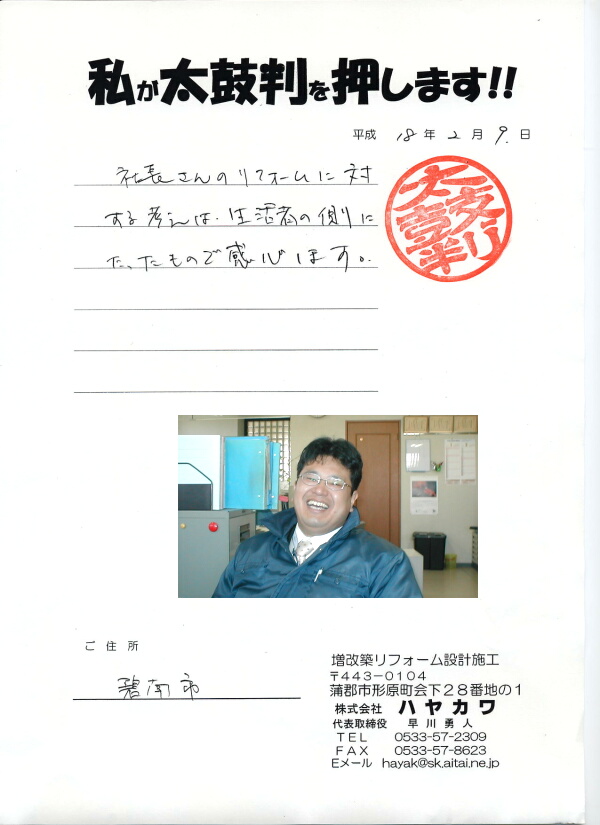 私が太鼓判を押します!!
平成 18年2月9日
社長さんのリフォームに対
する考えは、生活者の側に
たったもので感心します。
太鼓判
ご住所
碧南市
増改築リフォーム設計施工
〒443-0104
蒲郡市形原町会下28番地の1
株式会社 ハヤカワ
代表取締役 早川勇人
TEL 0533-57-2309
FAX 0533-57-8623
Eメール hayak@sk.aitai.ne.jp